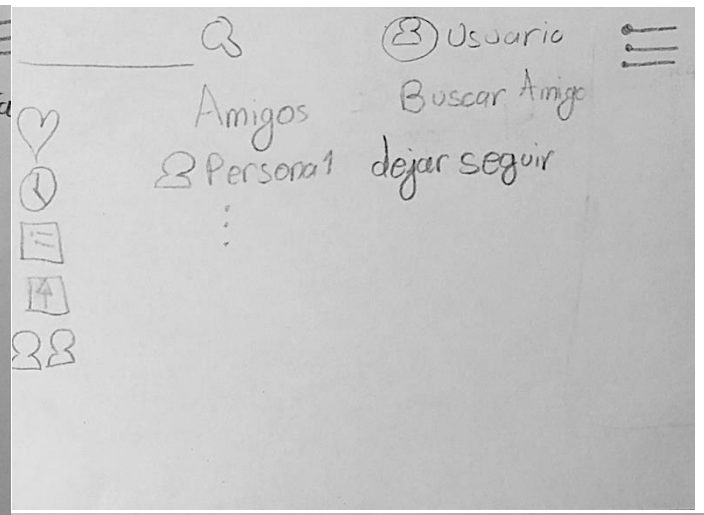 Usuario
Amigos Buscar Amigo
Persona1 dejar seguir